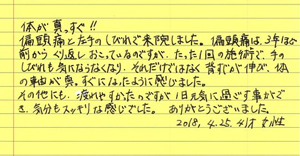 体が真っすぐ!!
偏頭痛と左手のしびれで来院しました。偏頭痛は、3年ほど
前からくり返しおこっているのですが、たった1回の施術で、手の
しびれも気にならなくなり、それだけではなく 背すじが伸び、体
の重心が真っすぐになったように感じました。
その他にも、疲れやすかったのですが 1日元気に過ごす事がで
き、気分もスッキリな感じでした。 ありがとうございました。
2018.4.25. 41才 女性